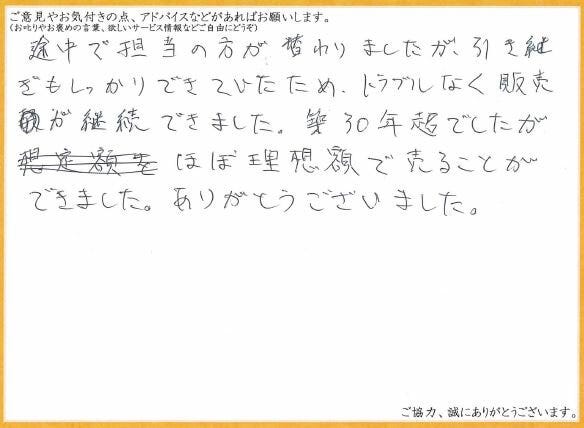 ご意見やお気付きの点、アドバイスなどがあればお願いします。
(お叱りやお褒めの言葉、欲しいサービス情報などご自由にどうぞ)
途中で担当の方が替わりましたが、引き継
ぎもしっかりできていたため、トラブルなく販売
が継続できました。築30年超でしたが
想定額を ほぼ理想額で売ることが
できました。ありがとうございました。
ご協力、誠にありがとうございます。